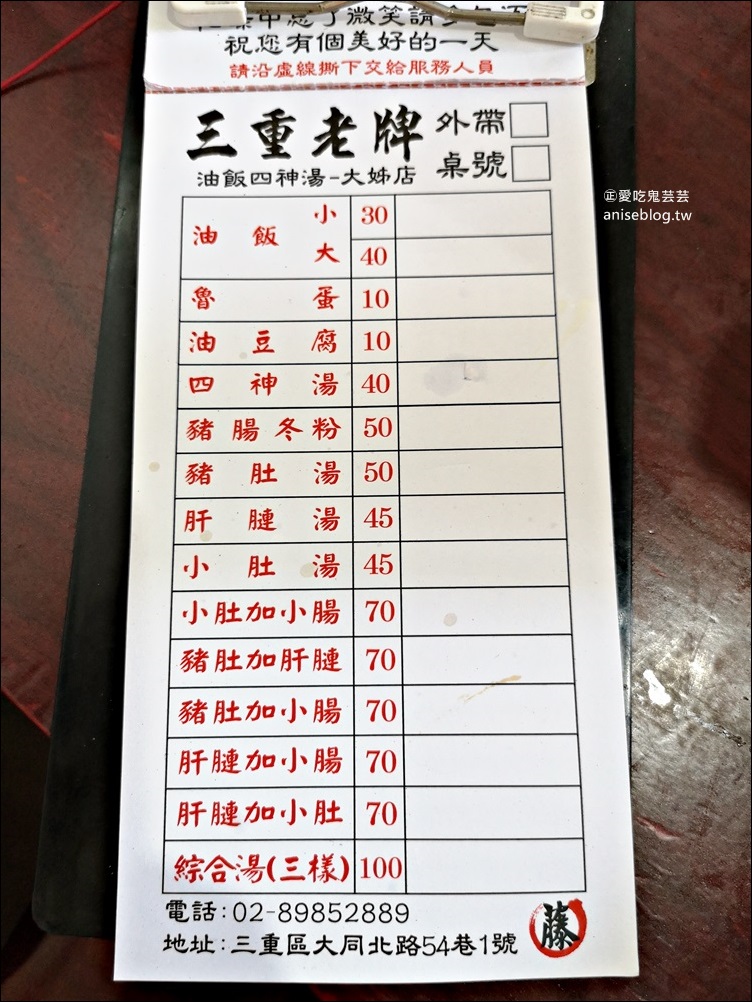 祝您有個美好的一天
請沿虛線撕下交給服務人員
三重老牌
油飯四神湯-大姊店
外帶
桌號
㊣愛吃鬼芸芸
aniseblog.tw
油飯 小 30
大 40
魯蛋 10
油豆腐 10
四神湯 40
豬腸冬粉 50
豬肚湯 50
肝膁湯 45
小肚湯 45
小肚加小腸 70
豬肚加肝膁 70
豬肚加小腸 70
肝膁加小腸 70
肝膁加小肚 70
綜合湯(三樣) 100
電話:02-89852889
地址:三重區大同北路54巷1號
藤